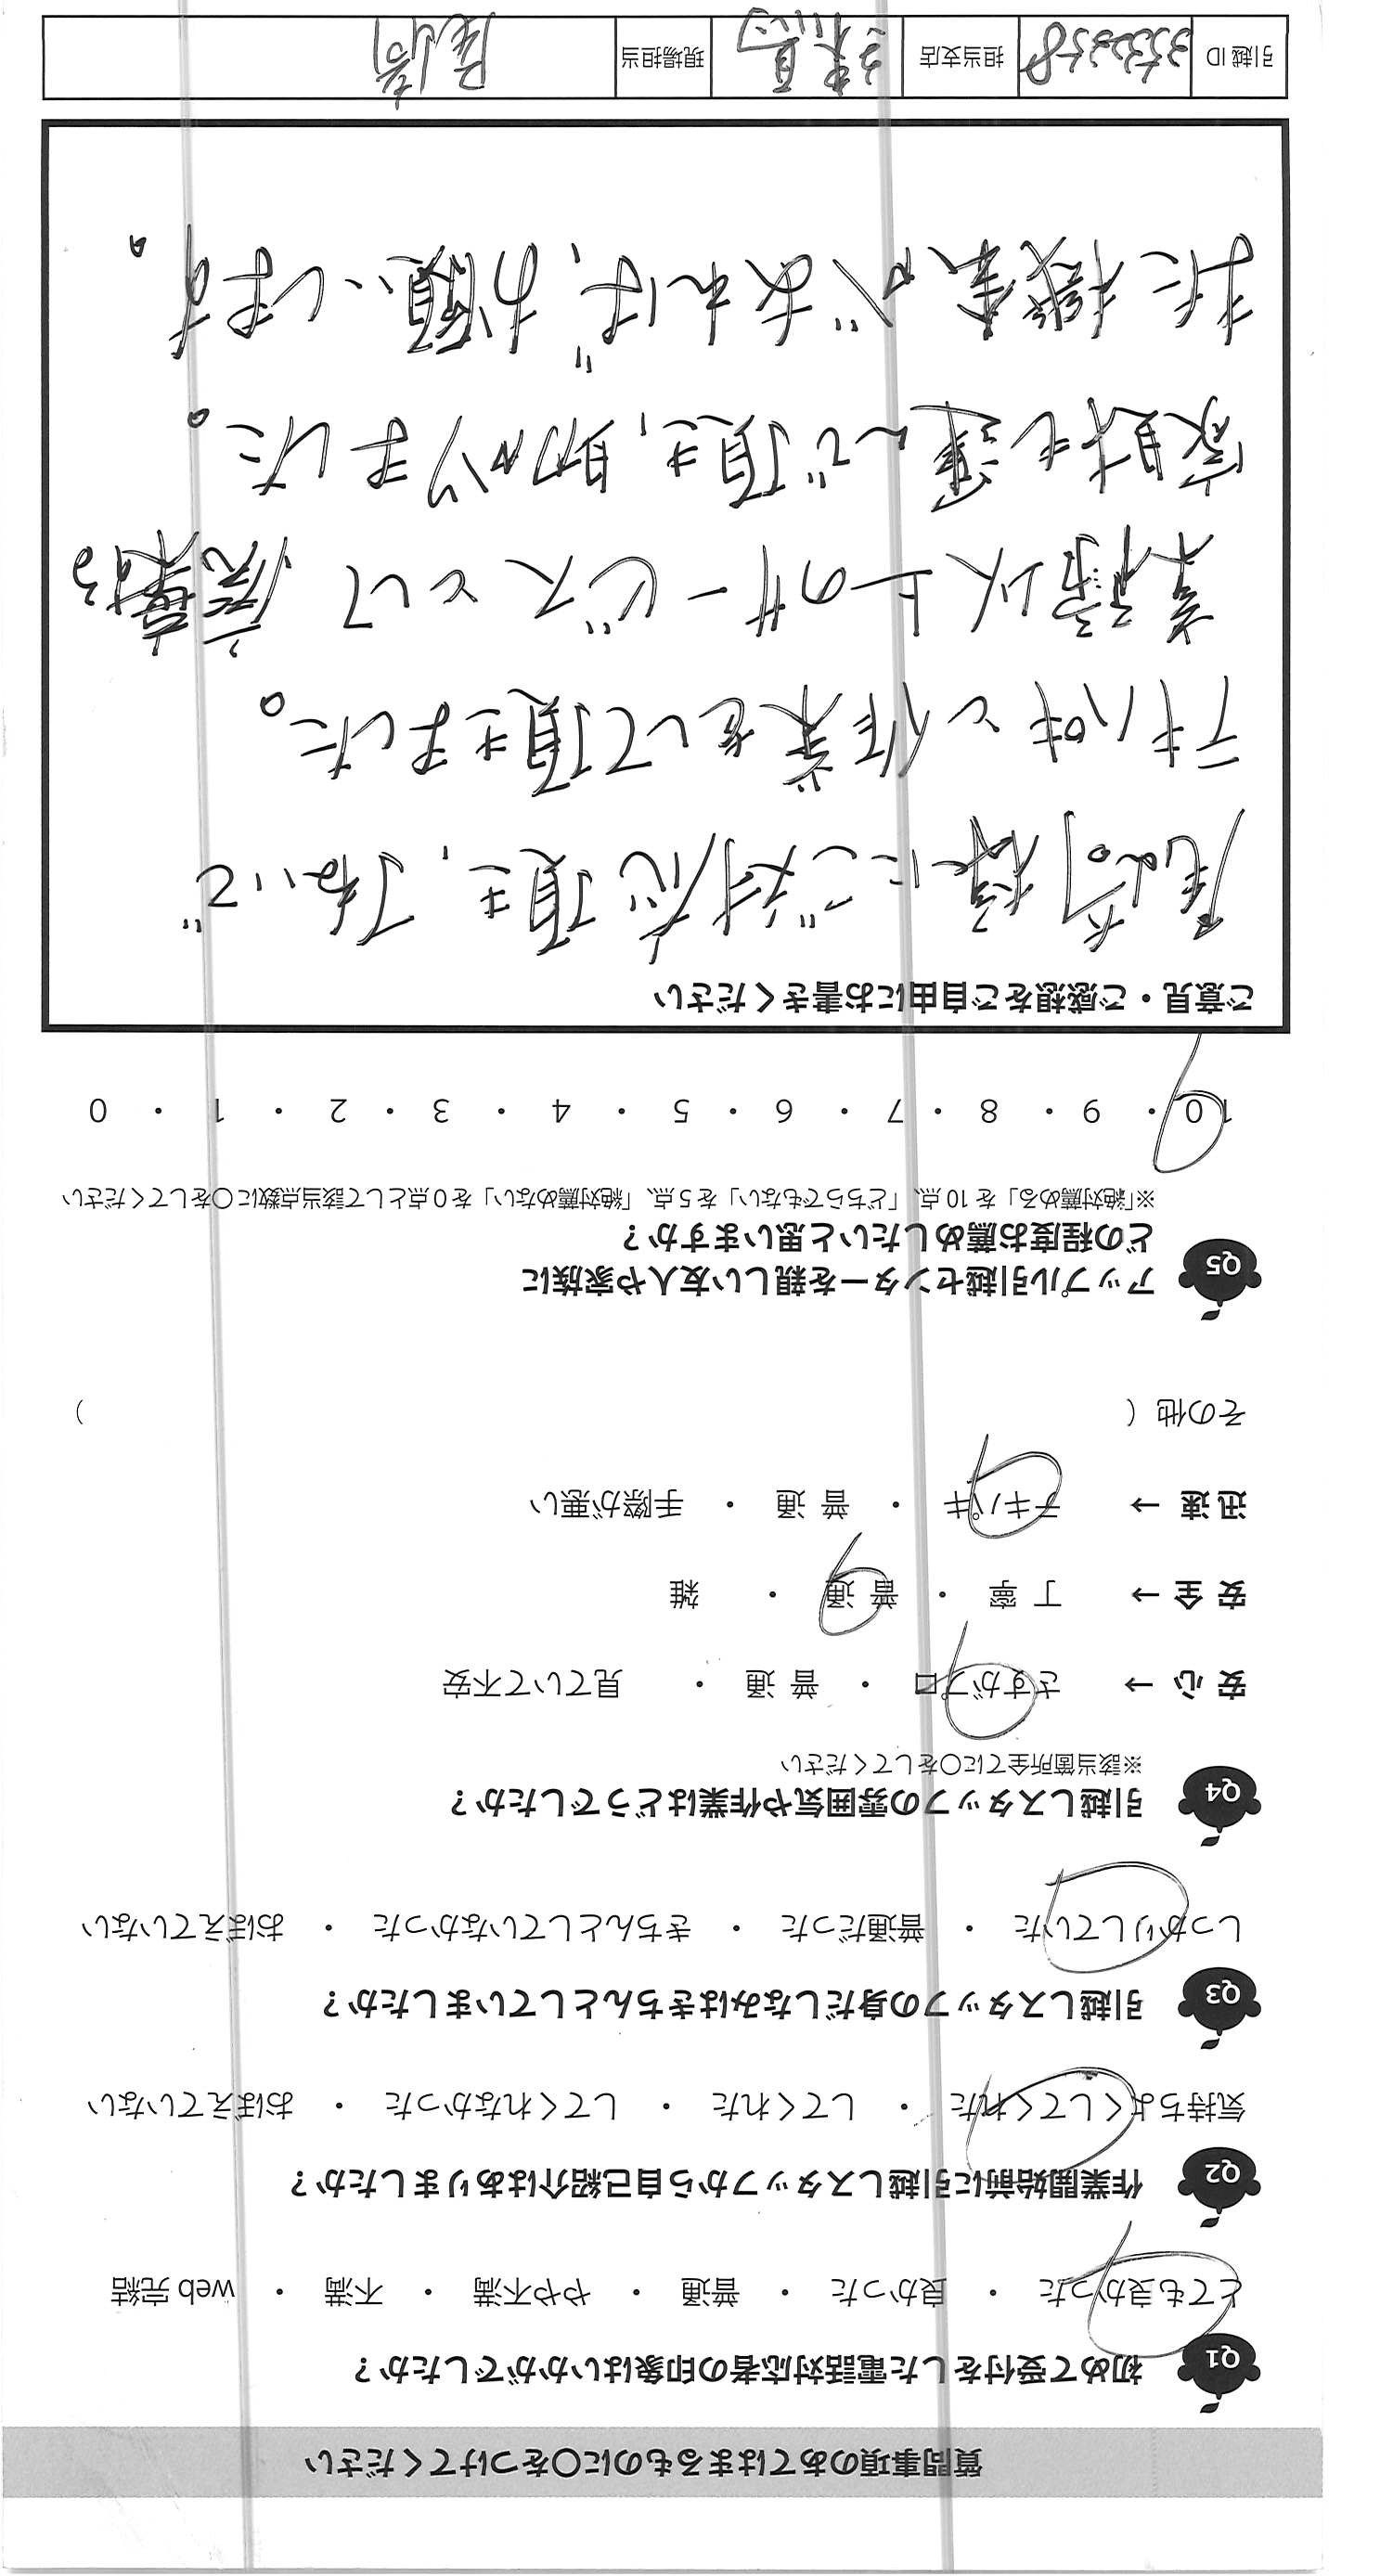 質問事項のあてはまるものに〇をつけてください
Q1 初めて受付をした電話対応者の印象はいかがでしたか？
とても良かった ・ 良かった ・ 普通 ・ やや不満 ・ 不満 ・ web 完結
Q2 作業開始前に引越しスタッフから自己紹介はありましたか？
気持ちよくしてくれた ・ してくれた ・ してくれなかった ・ おぼえていない
Q3 引越しスタッフの身だしなみはきちんとしていましたか？
しっかりしていた ・ 普通だった ・ きちんとしていなかった ・ おぼえていない
Q4 引越しスタッフの雰囲気や作業はどうでしたか？
※該当箇所全てに〇をしてください
安 心 → さすがプロ ・ 普 通 ・ 見ていて不安
安 全 → 丁 寧 ・ 普 通 ・ 雑
迅 速 → テキパキ ・ 普 通 ・ 手際が悪い
その他（ ）
Q5 アップル引越センターを親しい友人や家族に
どの程度お薦めしたいと思いますか？
※「絶対薦める」を 10 点、「どちらでもない」を 5 点、「絶対薦めない」を 0 点として該当点数に〇をしてください
10 ・ 9 ・ 8 ・ 7 ・ 6 ・ 5 ・ 4 ・ 3 ・ 2 ・ 1 ・ 0
ご意見・ご感想をご自由にお書きください
尾崎様にご対応頂き、丁ねいで
テキパキと作業をして頂きました。
業務以上のサービスとして廃棄する
家財も運んで頂き、助かりました。
また機会があれば、お願いします。
引越 ID 3532358 担当支店 練馬 現場担当 尾崎